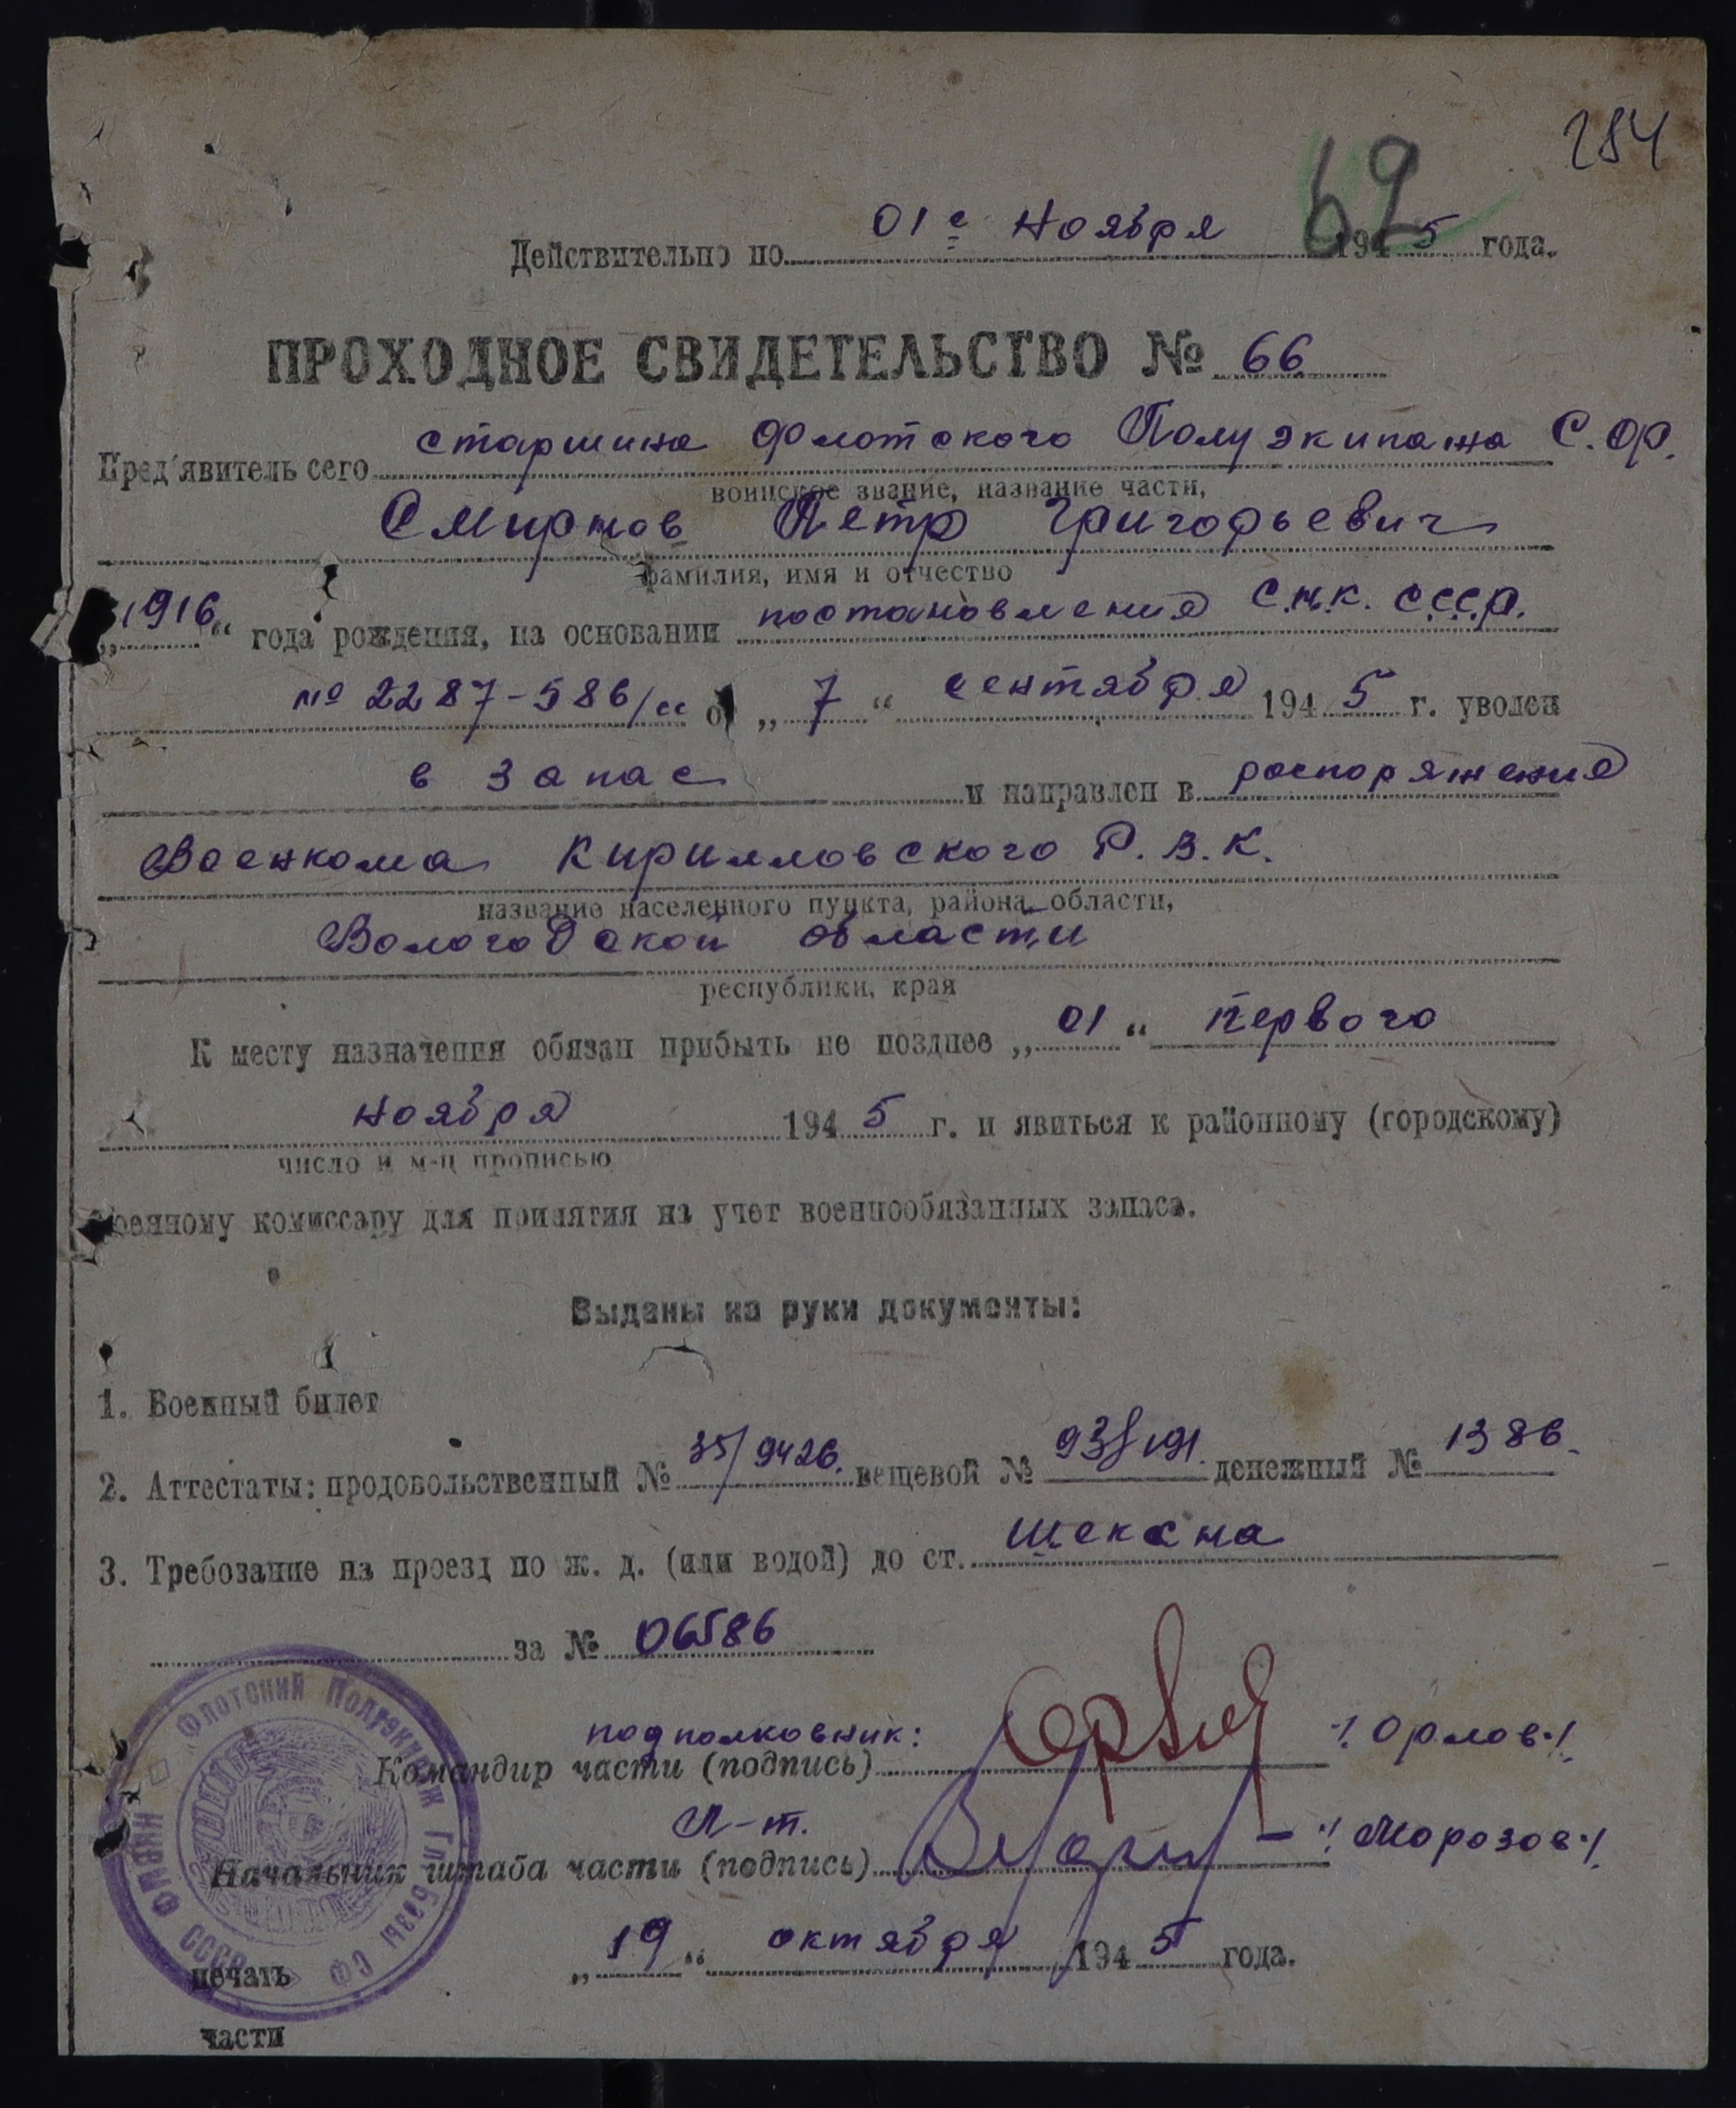 284
62
Действительно по 01е ноября 1945 года.
ПРОХОДНОЕ СВИДЕТЕЛЬСТВО № 66
Пред'явитель сего старшина Флотского Полуэкипажа С.Ф.
воинское звание, название части,
Смирнов Петр Григорьевич
фамилия, имя и отчество
„1916“ года рождения, на основании постановления С.н.к. СССР.
№ 2287-586/сс от „7“ сентября 1945 г. уволен
в запас и направлен в распоряжение
Военкома Кирилловского Р.В.К.
название населенного пункта, района, области,
Вологодской области
республики, края
К месту назначения обязан прибыть не позднее „01“ первого
ноября 1945 г. и явиться к районному (городскому)
число и м-ц прописью
военному комиссару для принятия на учет военнообязанных запаса.
Выданы на руки документы:
1. Военный билет
2. Аттестаты: продовольственный № 35/9426. вещевой № денежный № 1386.
3. Требование на проезд по ж. д. (или водой) до ст. Шексна
за № 06586
подполковник:
Командир части (подпись) /Орлов/
Л-т.
Начальник штаба части (подпись) /Морозов/
„19“ октября 1945 года.
печать
части
Флотский Полуэкипаж Гл. базы СФ
НКВМФ СССР